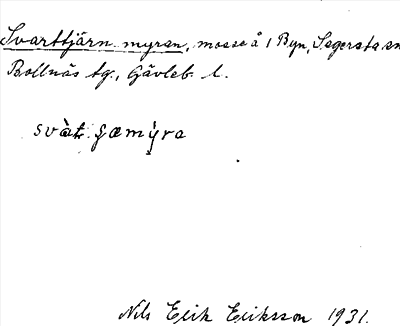 Svarttjärn myran, mosse å 1 Byn, Segersta sn
Bollnäs tg., Gävleb. l.
svàt. ʃæmỳra
Nils Erik Eriksson 1931.